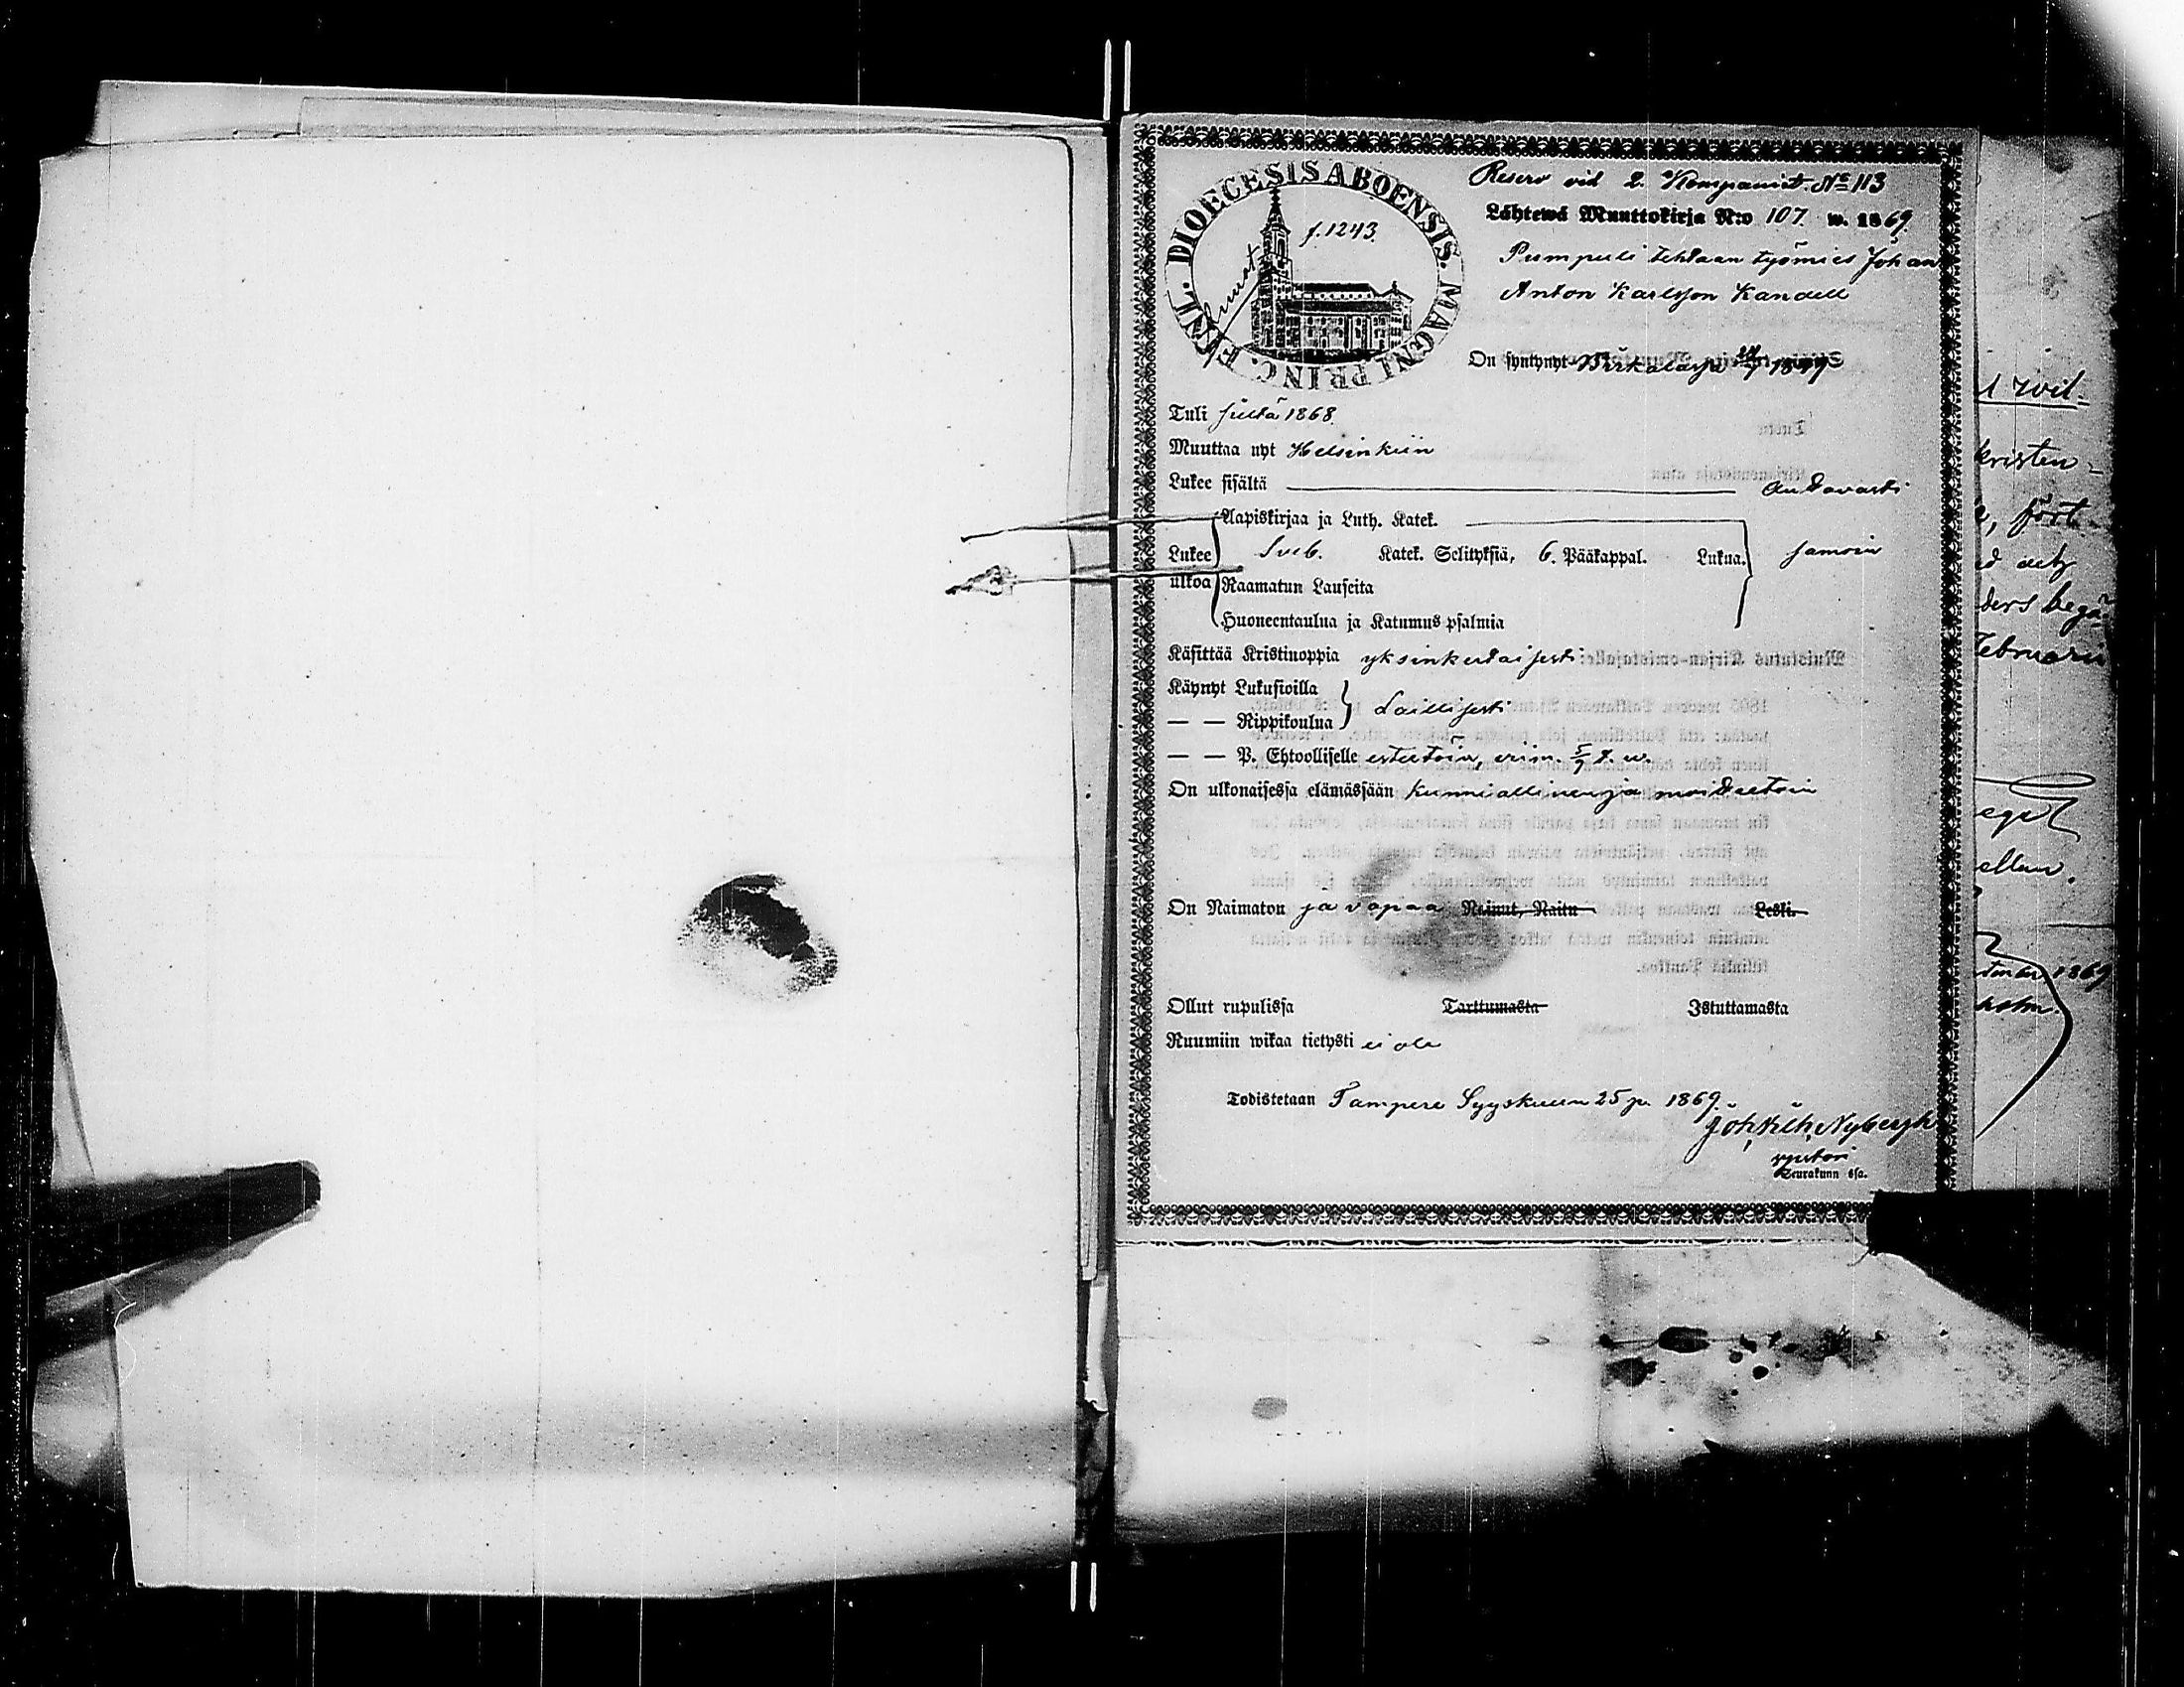 Reserv vid 2. Kompaniet. No 113
DIOECESIS ABOENSIS. MAGNI PRINC. FINL.
f. 1243.
Lähtewä Muuttokirja N:o 107 w. 1869.
Pumpuli tehtaan työmies Johan
Anton Karlsson Kandell
On syntynyt Birkalassa
Tuli sieltä 1868.
Muuttaa nyt Helsinkiin
Lukee sisältä auttavasti
Aapiskirjaa ja Luth. Katek.
Lukee Sveb. Katek. Selityksiä, 6. Pääkappal. Lukua. samoin
ulkoa Raamatun Lauseita
Huoneentaulua ja Katumus psalmia
Käsittää Kristinoppia yksinkertaisesti
Käynyt Lukusioilla
— — Rippikoulua Laillisesti
— — P. Ehtoolliselle esteetöin, viim. 5/9 t. w.
On ulkonaisessa elämässään kunniallinen ja moitteetoin
On Naimaton ja vapaa Nainut, Naitu Leski
Ollut rupulissa Tarttumasta Istuttamasta
Ruumiin wikaa tietysti ei ole
Todistetaan Tampere Syyskuun 25 p. 1869.
Nybergh
Seurakunn ssa.
kristen=
fört
ders begä
Februari
ellan.
1869